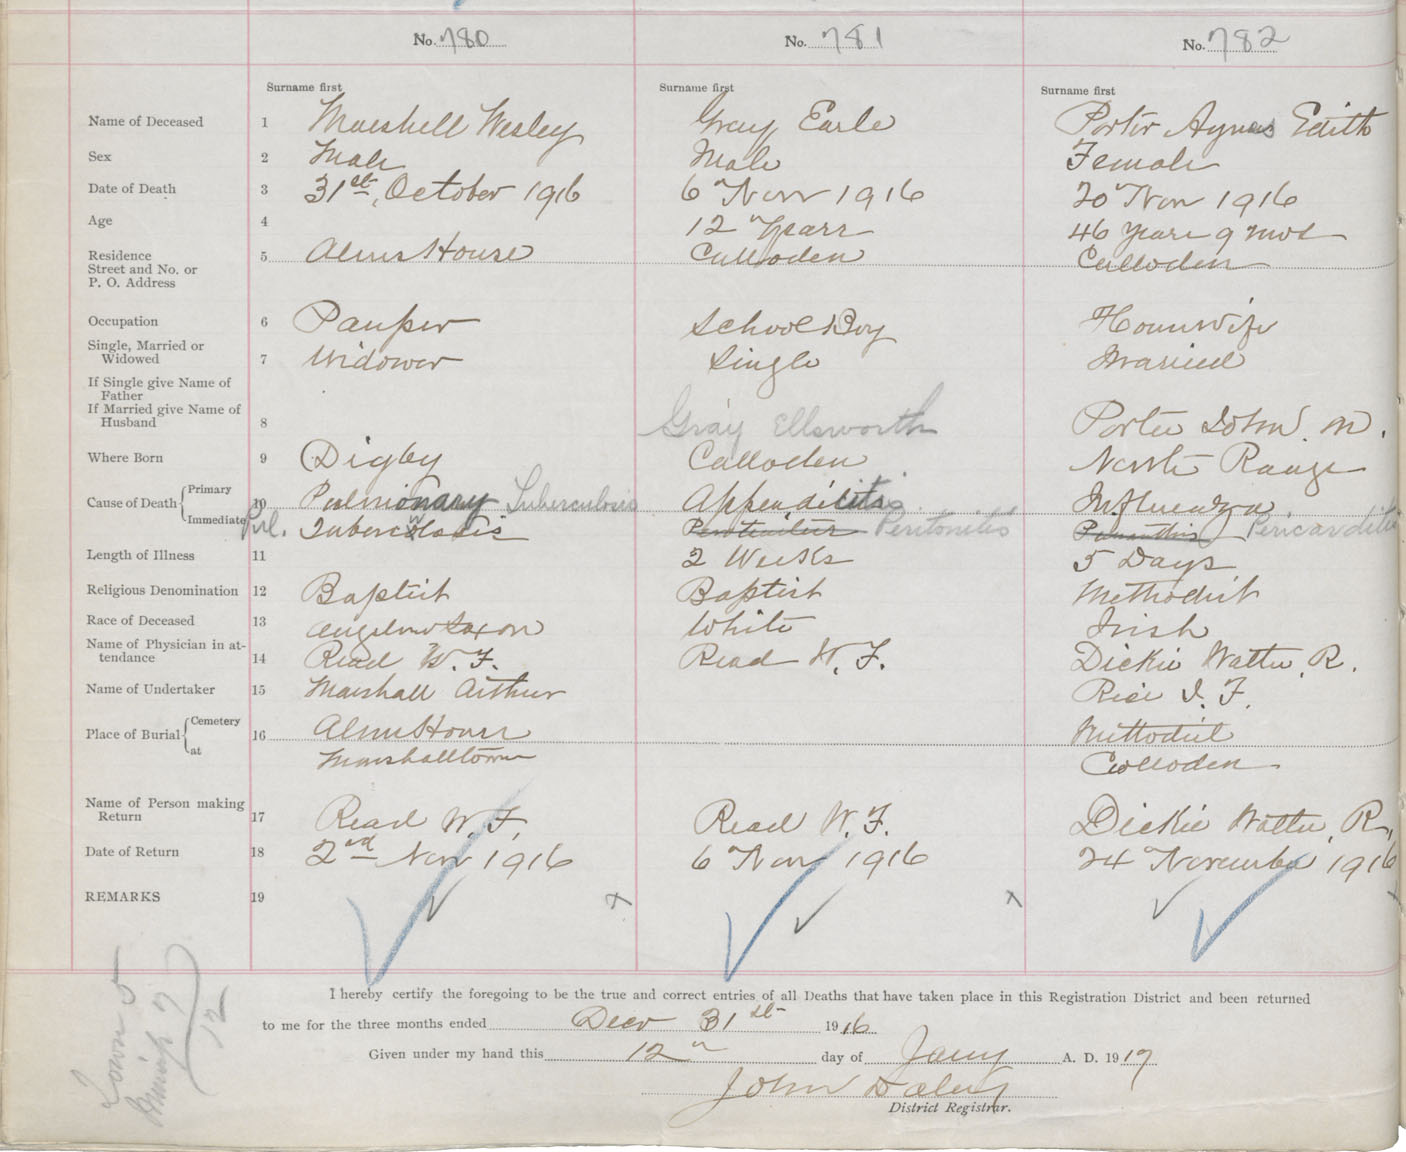 No. 780 No. 781 No. 782
Surname first Surname first Surname first
Name of Deceased 1 Marshall Wesley Gray Earle Porter Agnes Edith
Sex 2 Male Male Female
Date of Death 3 31st, October 1916 6" Nov 1916 20" Nov 1916
Age 4 12 Years 46 years 9 mos
Residence 5 Alms House Culloden Culloden
Street and No. or
P. O. Address
Occupation 6 Pauper School Boy Housewife
Single, Married or
Widowed 7 Widower Single Married
If Single give Name of
Father
If Married give Name of
Husband 8 Gray Ellsworth Porter John M.
Where Born 9 Digby Culloden North Range
Cause of Death Primary 10 Pulmionary Tuberculosis Appendicitis Influenza
Immediate Pul. Tuberculosis Peritonitis Pericarditis
Length of Illness 11 2 Weeks 5 Days
Religious Denomination 12 Baptist Baptist Methodist
Race of Deceased 13 Anglow Saxon White Irish
Name of Physician in at-
tendance 14 Read W. F. Read W. F. Dickie Walter, R.
Name of Undertaker 15 Marshall Arthur Rice I. F.
Place of Burial Cemetery 16 Alms House Methodist
at Marshalltown Culloden
Name of Person making
Return 17 Read W. F. Read W. F. Dickie Walter, R.
Date of Return 18 2nd Nov 1916 6" Nov 1916 24" November 1916
REMARKS 19
I hereby certify the foregoing to be the true and correct entries of all Deaths that have taken place in this Registration District and been returned
to me for the three months ended Decr 31st 1916
Given under my hand this 12" day of Jany A. D. 1917
John Daley
District Registrar.
Town 5
Munip 7
12